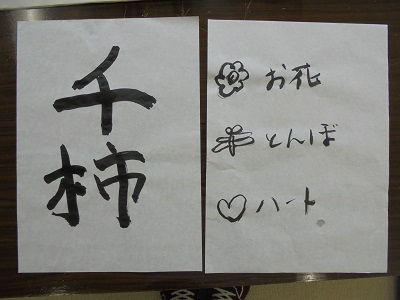 千
柿
お花
とんぼ
ハート